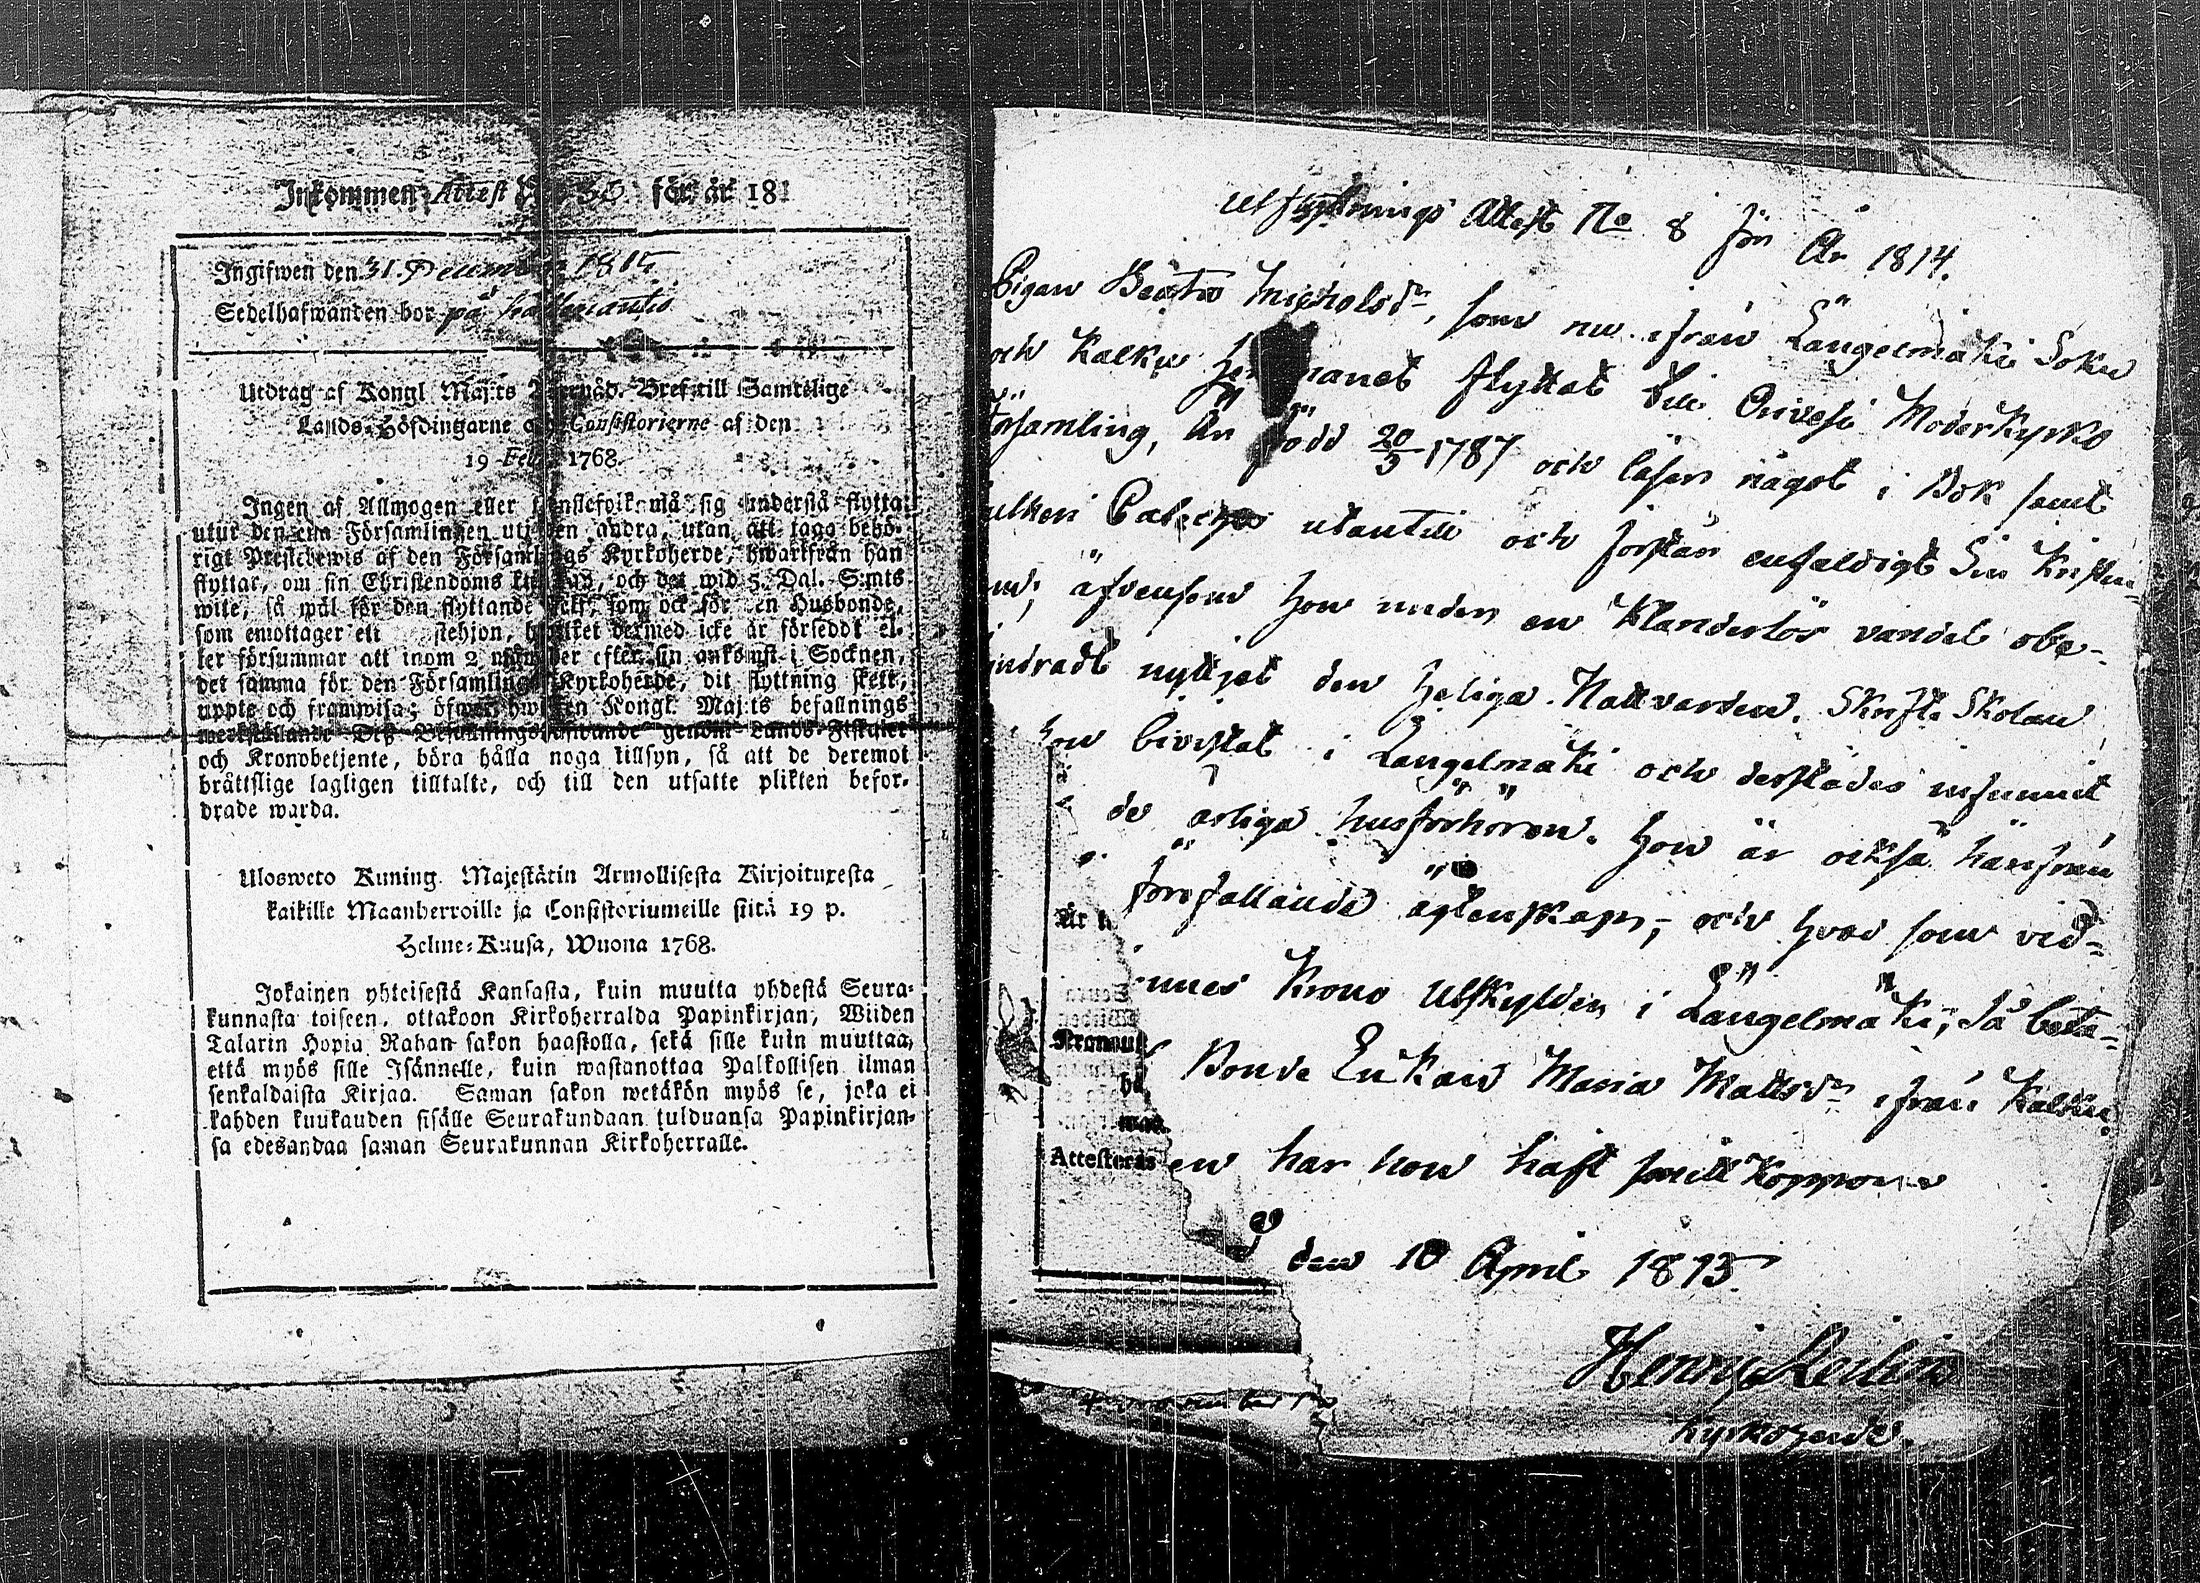 Inkommen Attest N:o 36 för år 181
Ingifwen den 31. December 1815
Sedelhafwanden bor på
Utdrag af Kongl Maj:ts Bref till Samtelige
Lands-Höfdingarne och Consistorierne af den
19 Febr. 1768.
Ingen af Allmogen eller må sig understå flytta
utur den ena Församlingen uti den andra, utan att taga behö-
rigt Prestebewis af den Församlings Kyrkoherde, hwarifrån han
flyttar, om sin Christendoms och det wid 5. Dal. S:mts
wite, så wäl för den flyttande self, som ock för den Husbonde,
som emottager ett hwilket dermed icke är försedt el-
ler försummar att inom 2 månader efter sin ankomst i Socknen,
det samma för den Församlings Kyrkoherde, dit flyttning skett,
uppte och framwisa; öfwer hwilken Kongl. Maj:ts befallnings
werkställande genom Lands-Fiskaler
och Kronobetjente, böra hålla noga tillsyn, så att de deremot
bråttslige lagligen tilltalte, och till den utsatte plikten befor-
drade warda.
Ulosweto Kuning. Majestätin Armollisesta Kirjoituxesta
kaikille Maanherroille ja Consistoriumeille siitä 19 p.
Helme-Kuusa, Wuona 1768.
Jokainen yhteisestä Kansasta, kuin muutta yhdestä Seura-
kunnasta toiseen, ottakoon Kirkoherralda Papinkirjan, Wiiden
Talarin Hopia Rahan sakon haastolla, sekä sille kuin muuttaa,
että myös sille Isännelle, kuin wastanottaa Palkollisen ilman
senkaldaista Kirjaa. Saman sakon wetäkön myös se, joka ei
kahden kuukauden sisälle Seurakundaan tulduansa Papinkirjan-
sa edesandaa saman Seurakunnan Kirkoherralle.
Utflyttnings Attest No 8 för År 1814.
Pigan Beata Michelsdr, som nu ifrån Längelmäki Sokn
och Kalku flyttat till Orivesi Moderkyrko
församling, är född 20/3 1787 och läser något i Bok samt
Cateches utantill och förstår enfaldigt Sin Kristen-
äfvensom hon under en Klanderlös vandel obe-
indradt nyttjat den heliga Nattvarden. Skrift Skolan
hon bivistat i Längelmäki och derstädes infunnit
de årliga husförhören. Hon är också härifrån
förefallande ägtenskap, och hvad som ved-
innes Krono Utskylder i Längelmäki, så beta-
Bonde Enkan Maria Mattsdr ifrån Kalku.
en har hon haft smittkopporne
den 10 April 1815.
Henric
Kyrkoherde.
Är h
Kronout
Attesteras